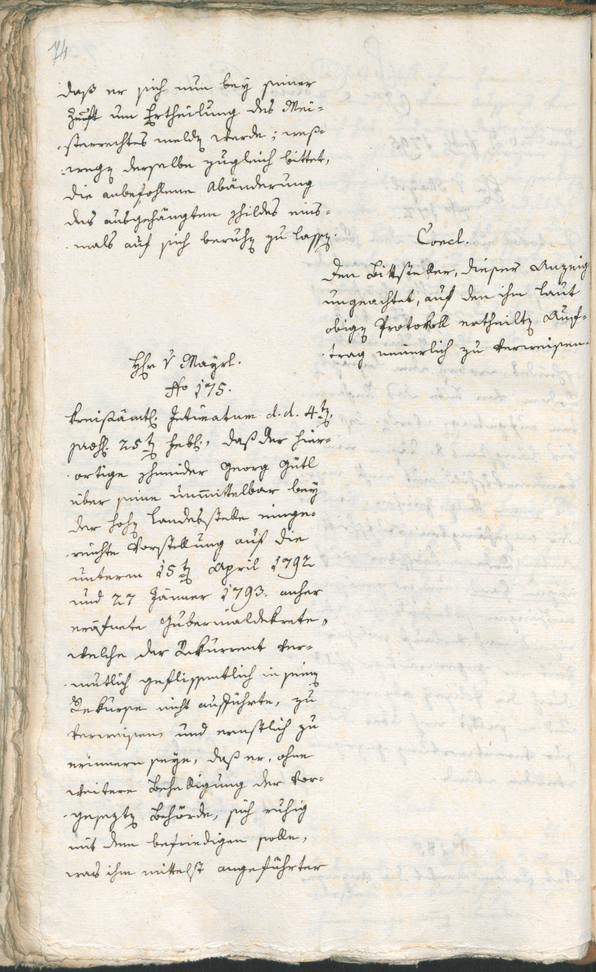 74
daß er sich nun bey seiner
Zunft um Ertheilung des Mei-
sterrechtes meldn werde; weß-
wegn derselbe zugleich bittet,
die anbefohlene Abänderung
des ausgehängten Schildes eins-
mals auf sich beruhn zu lassn.
Concl.
Den Bittsteller, dieser Anzeig
ungeachtet, auf den ihm laut
obign Protokoll ertheiltn Auf-
trag neuerlich zu verweisen.
Hr v Mayrl.
No 175.
Kreisämtl. Intimatum d. d. 4tn,
praes. 25tn Febl., daß der hier-
ortige Schneider Georg Gütl
über seine unmittelbar bey
der hohn Landesstelle einge-
reichte Vorstellung auf die
unterm 15tn April 1792
und 27 Jänner 1793. anher
eröfnete Gubernialdekrete,
welche der Rekurrent ver-
mutlich geflissentlich in seinn
Rekurse nicht anführte, zu
verweisen und ernstlich zu
erinnern seye, daß er, ohne
weitere Behelligung der vor-
gesetztn Behörde, sich ruhig
mit dem befriedigen solle,
was ihm mittelst angeführter